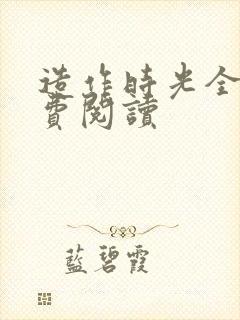 造作時光全
費閱讀
藍碧霞